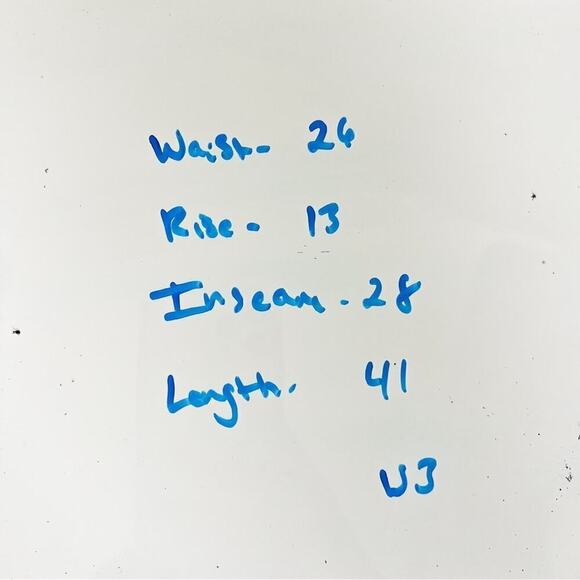 Waist- 26
Rise- 13
Inseam- 28
Length. 41
W3